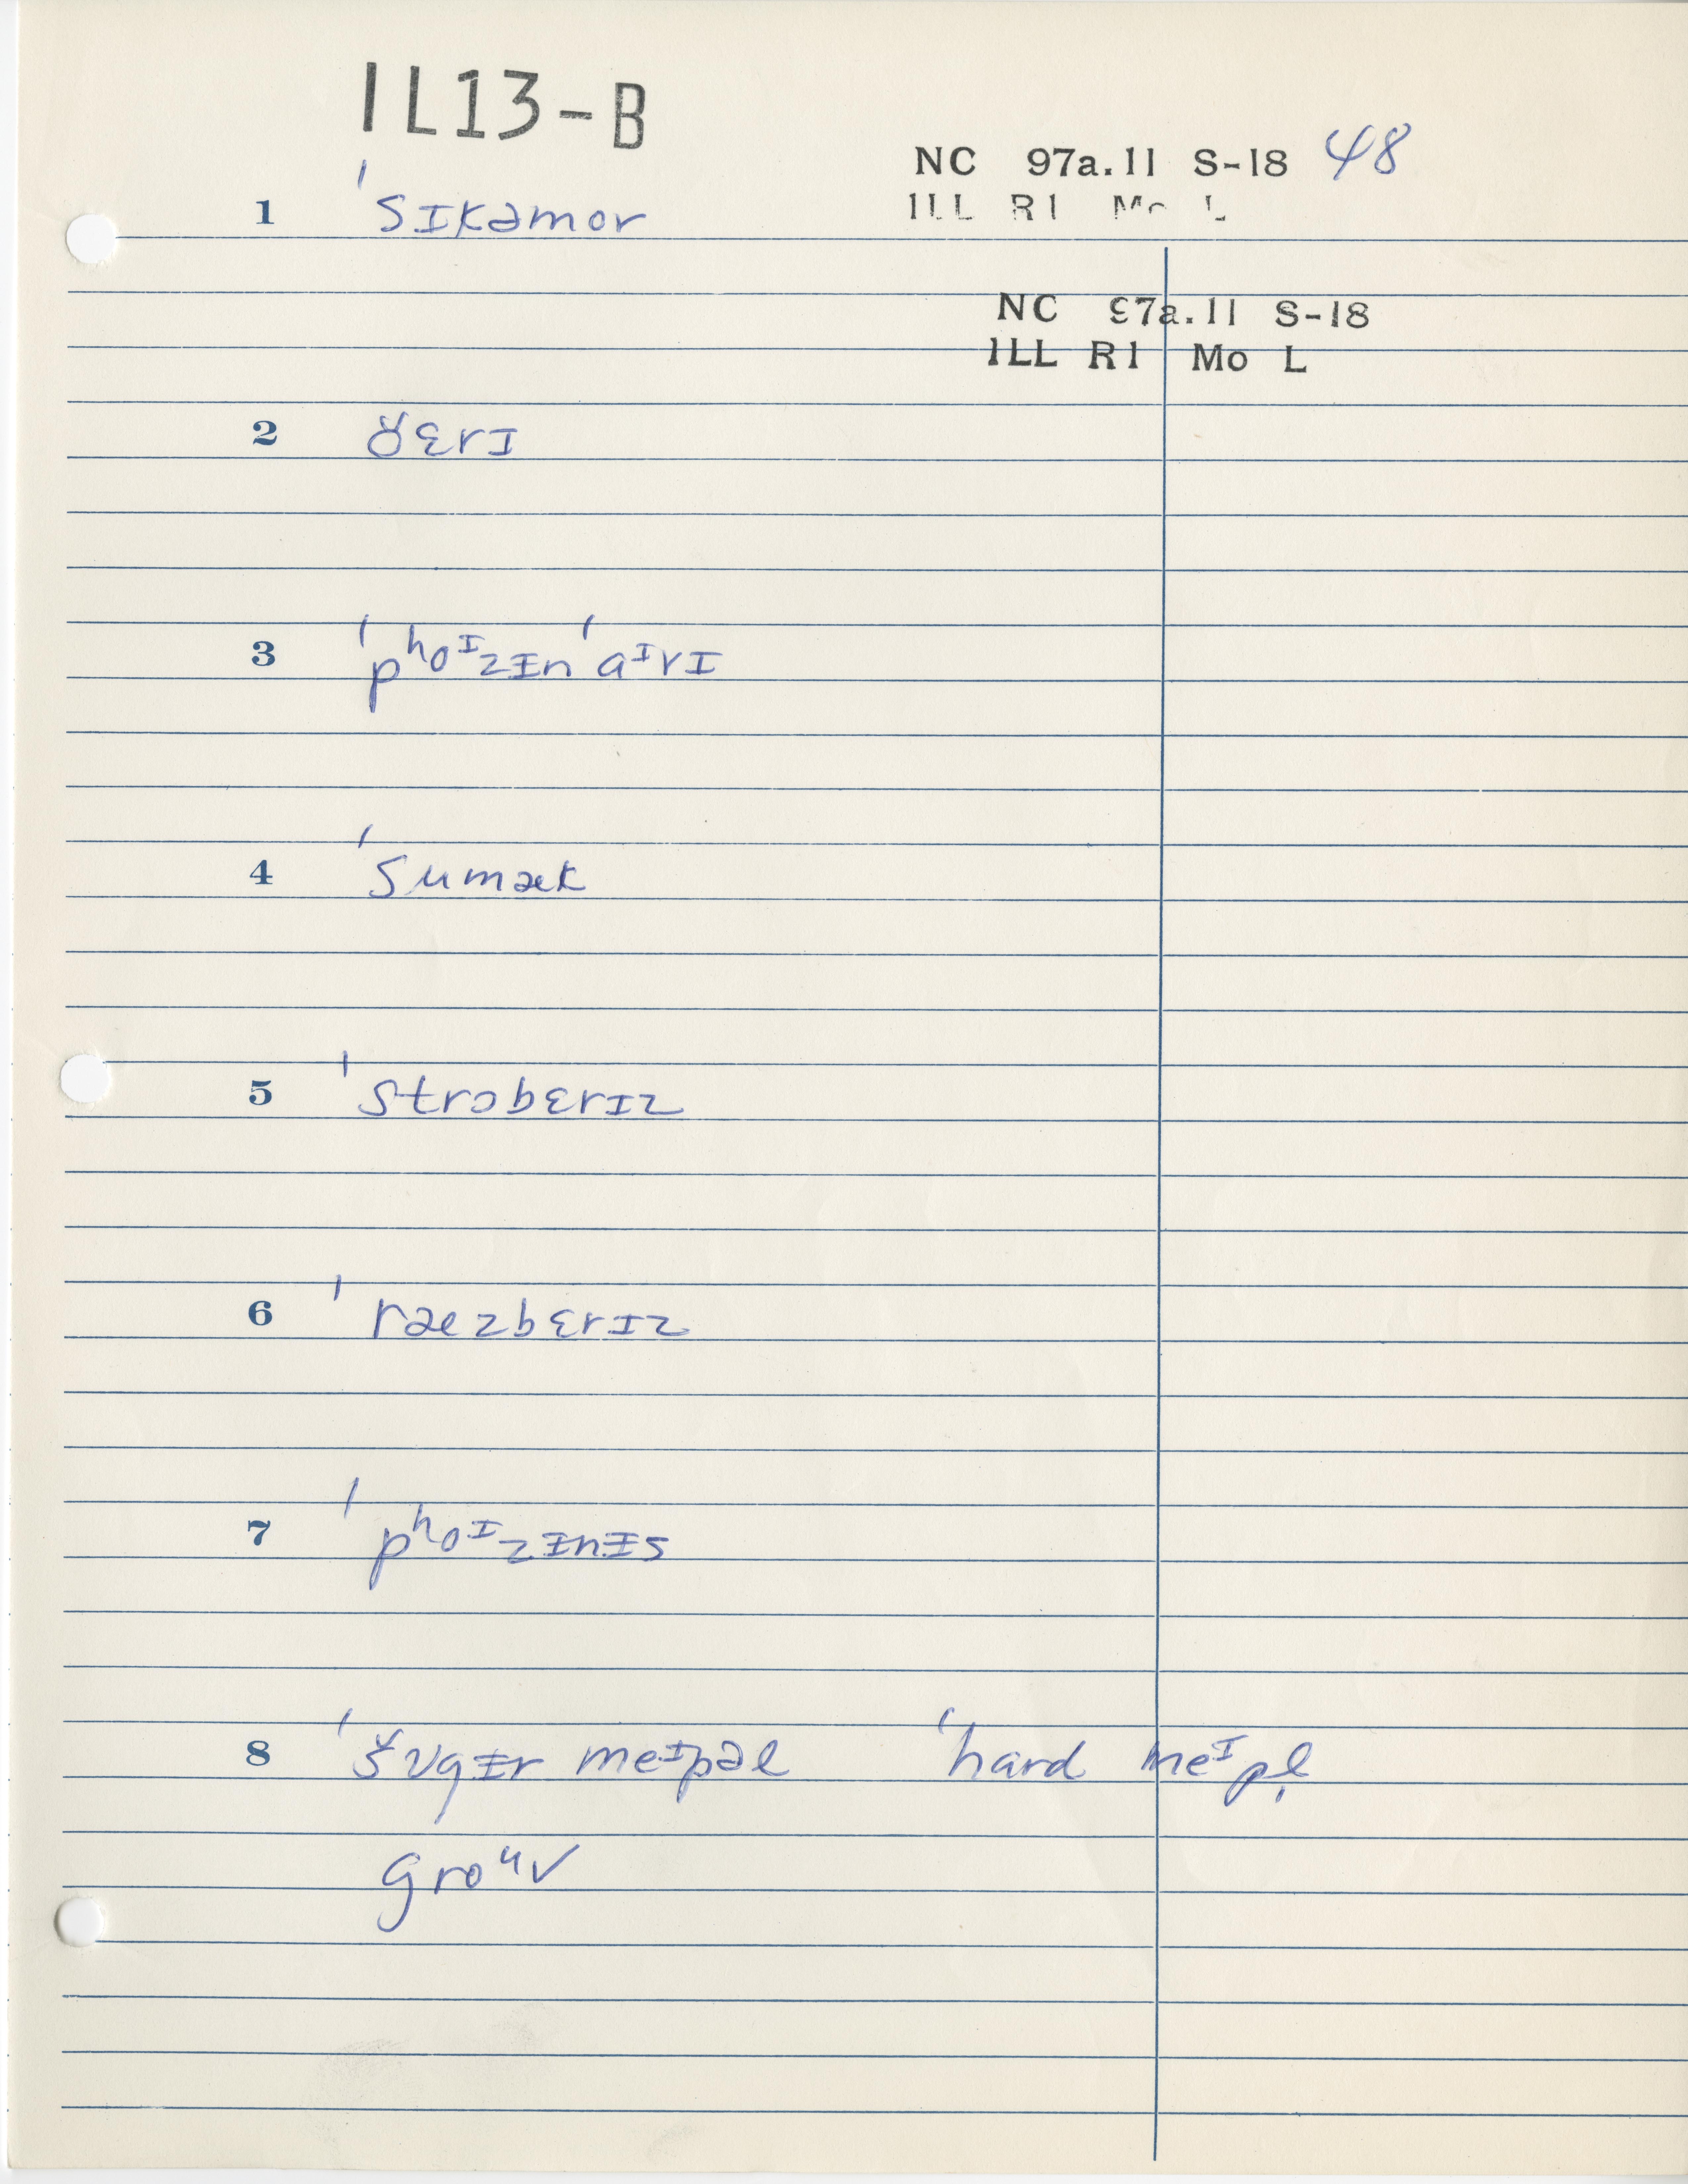 IL13-B
NC 97a.11 S-18 48
ILL R1 Mo L
1 ˈsɪkəmor
NC 97a.11 S-18
ILL R1 Mo L
2 ɛrɪ
3 ˈpʰoᶦzɪ̵n ˈaᶦvɪ
4 ˈsumæk
5 ˈstrɔbɛrɪz
6 ˈræzbɛrɪz
7 ˈpʰoᶦzɪ̵nɪ̵s
8 ˈšʊgɪ̵r meᶦpəl ˈhard meᶦpl̩
groᵘv